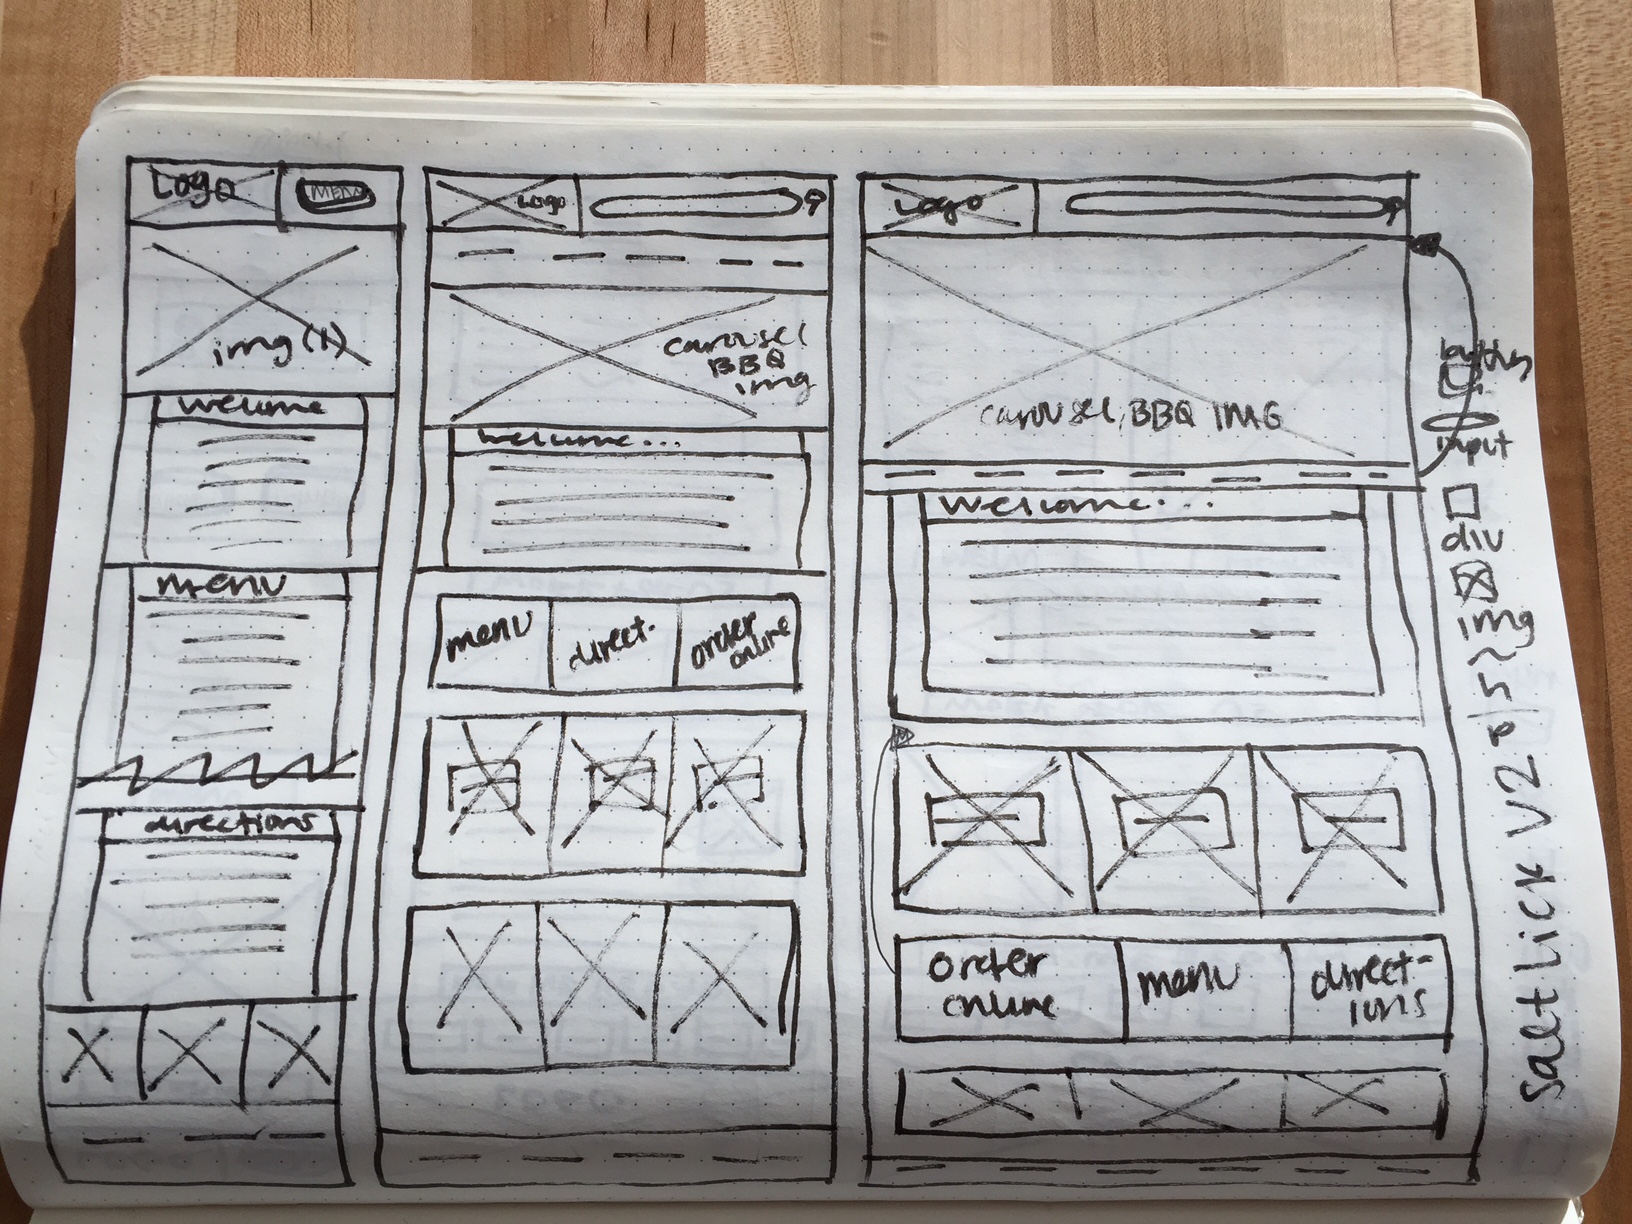 Logo
MENU
img(x)
welcome
menu
directions
Logo
carousel
BBQ
img
welcome...
menu
direct-
order
online
Logo
carousel, BBQ IMG
welcome....
order
online
menu
direct-
ions
button
input
div
img
h
p
saltlick V2